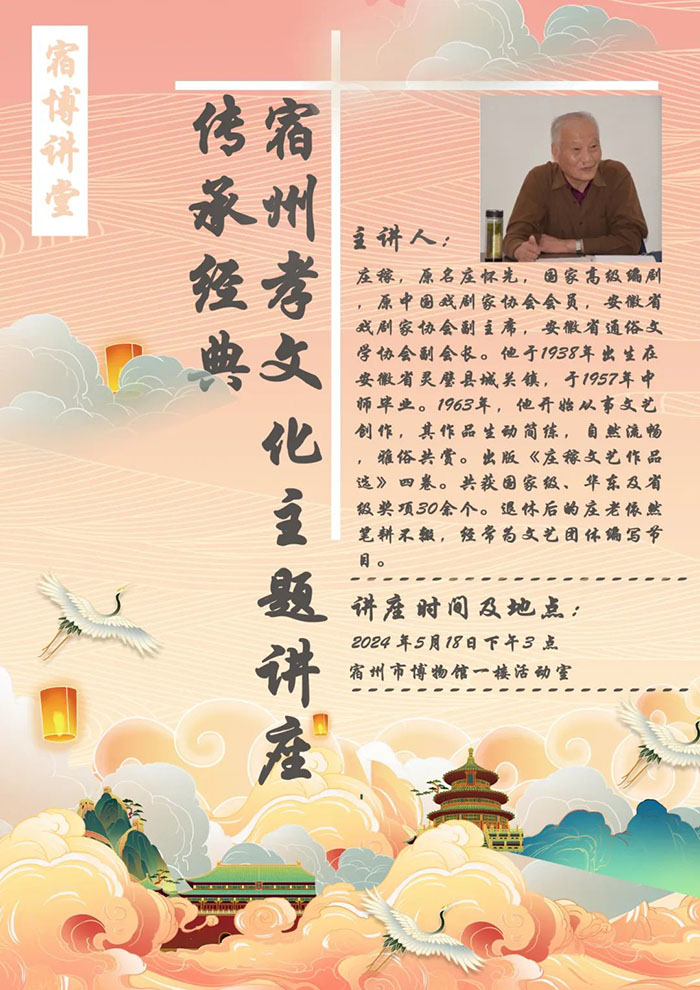 宿博讲堂
宿州孝文化主题讲座
传承经典
主讲人：
庄稼，原名庄怀先，国家高级编剧
，原中国戏剧家协会会员，安徽省
戏剧家协会副主席，安徽省通俗文
学协会副会长。他于1938年出生在
安徽省灵璧县城关镇，于1957年中
师毕业。1963年，他开始从事文艺
创作，其作品生动简练，自然流畅
，雅俗共赏。出版《庄稼文艺作品
选》四卷。共获国家级、华东及省
级奖项30余个。退休后的庄老依然
笔耕不辍，经常为文艺团体编写节
目。
讲座时间及地点：
2024年5月18日下午3点
宿州市博物馆一楼活动室